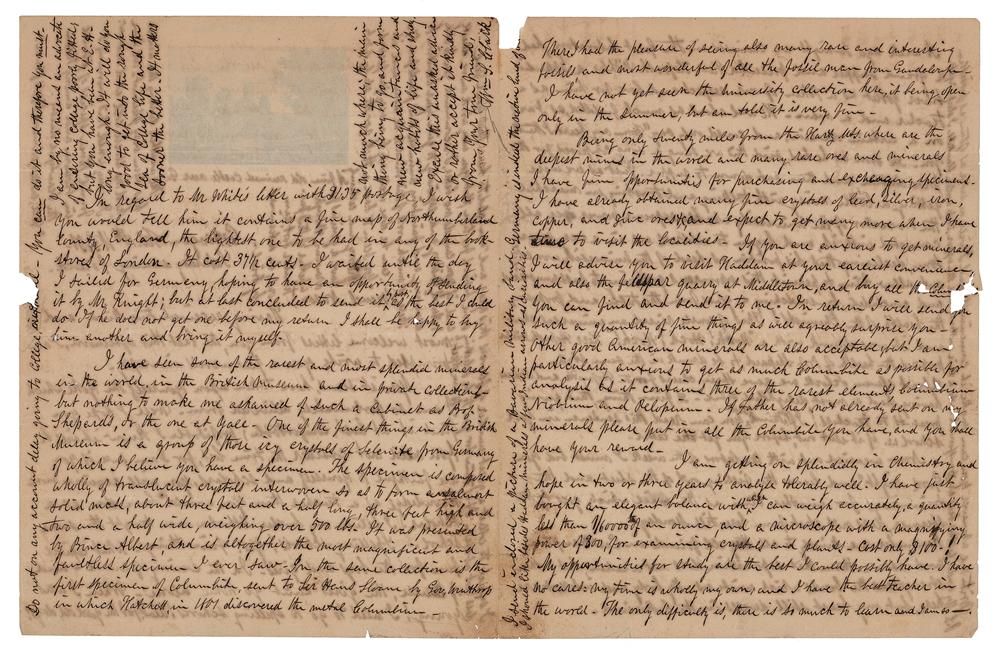 In regard to Mr White's letter with $1.35 postage, I wish
you would tell him it contains a fine map of Northumberland
County, England, the lightest one to be had in any of the book-
stores of London. It cost 37½ cents. I waited until the day
I sailed for Germany, hoping to have an opportunity of sending
it by Mr. Knight; but at last concluded to send it, as the best I could
do. If he does not get one before my return I shall be happy to buy
him another and bring it myself.
I have seen some of the rarest and most splendid minerals
in the world, in the British Museum and in private collections,
but nothing to make me ashamed of such a cabinet as Prof
Shepards, or the one at Yale. One of the finest things in the British
Museum is a group of those icy crystals of Selenite from Germany
of which I believe you have a specimen. The specimen is composed
wholly of translucent crystals interwoven so as to form an almost
solid mass, about three feet and a half long, three feet high and
two and a half wide, weighing over 500 lbs. It was presented
by Prince Albert, and is altogether the most magnificent and
faultless specimen I ever saw. In the same collection is the
first specimen of Columbite, sent to Sir Hans Sloane by Gov. Winthrop
in which Hatchett in 1801 discovered the metal Columbium.
There I had the pleasure of seeing also many rare and interesting
fossils, and most wonderful of all the fossil man from Guadeloupe.
I have not yet seen the University collection here, it being open
only in the summer, but am told it is very fine.
Being only twenty miles from the Hartz Mts. where are the
deepest mines in the world and many rare ores and minerals
I have fine opportunities for purchasing and exchanging specimens.
I have already obtained many fine crystals of lead, silver, iron,
copper, and zinc ores and expect to get many more when I have
time to visit the localities. If you are anxious to get minerals,
I will advise you to visit Haddam at your earliest convenience
and also the feldspar quarry at Middletown, and buy all the
you can find and send it to me. In return I will send you
such a quantity of fine things as will agreeably surprise you.
Other good American minerals are also acceptable, but I am
particularly anxious to get as much Columbite as possible for
analysis as it contains three of the rarest elements, Columbium
Niobium and Pelopium. If Father has not already sent on my
minerals please put in all the Columbite you have, and you shall
have your reward.
I am getting on splendidly in Chemistry and
hope in two or three years to analyze tolerably well. I have just
bought an elegant balance with which I can weigh accurately, a quantity
less than of an ounce and a microscope with a magnifying
power of 300, for examining crystals and plants. Cost only $100!
My opportunities for study are the best I could possibly have. I have
no cares: my time is wholly my own, and I have the best teacher in
the world. The only difficulty is, there is so much to learn and I am so
I send enclosed a picture of a favorite military band
Do not on any account delay going to College. You can do it and therefore you must
I am by no means an advocate
of entering College poorly fitted;
but you have been at E.H.
long enough. It will do you
good to get into the rough
sea of College life and the
sooner the better. It matters
not much where, the main
thing being to go, and form
new acquaintances and
new habits of life and study
Excuse this unasked advice
or rather accept it kindly
from Your true friend,
Wm. S. Clark.